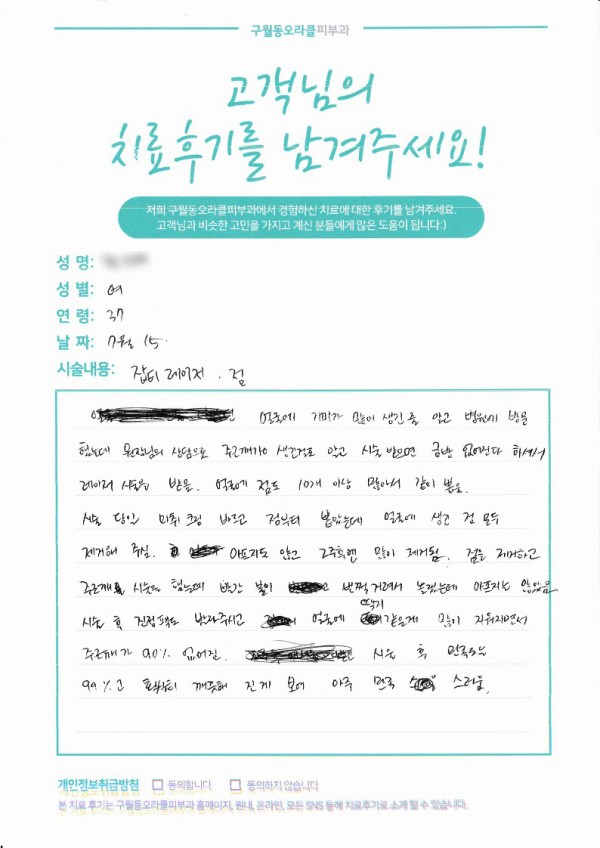 구월동오라클피부과
고객님의
치료후기를 남겨주세요!
저희 구월동오라클피부과에서 경험하신 치료에 대한 후기를 남겨주세요.
고객님과 비슷한 고민을 가지고 계신 분들에게 많은 도움이 됩니다:)
성 명:
성 별: 여
연 령: 37
날 짜: 7월 15.
시술내용: 잡티 레이저. 점
얼굴에 기미가 많이 생긴 줄 알고 병원에 방문
했는데 원장님의 상담으로 주근깨가 생긴걸로 알고 시술 받으면 금방 없어진다 하셔서
레이저 시술을 받음. 얼굴에 점도 10개 이상 많아서 같이 뽑음.
시술 당일 마취 크림 바르고 점부터 뽑았는데 얼굴에 생긴 점 모두
제거해 주심. 아프지도 않고 2주후엔 많이 제거됨. 점을 제거하고
주근깨 시술도 했는데 빨간 불이 번쩍 거려서 놀랐는데 아프지는 않았음
시술 후 진정팩도 발라주시고 얼굴에 딱지 같은게 많이 지워지면서
주근깨가 90% 없어진. 시술 후 만족도는
99%고 피부가 깨끗해 진게 보여 아주 만족 스러움.
개인정보취급방침 □ 동의합니다 □ 동의하지 않습니다
본 치료 후기는 구월동오라클피부과 홈페이지, 원내, 온라인, 모든 SNS 등에 치료후기로 소개 될 수 있습니다.